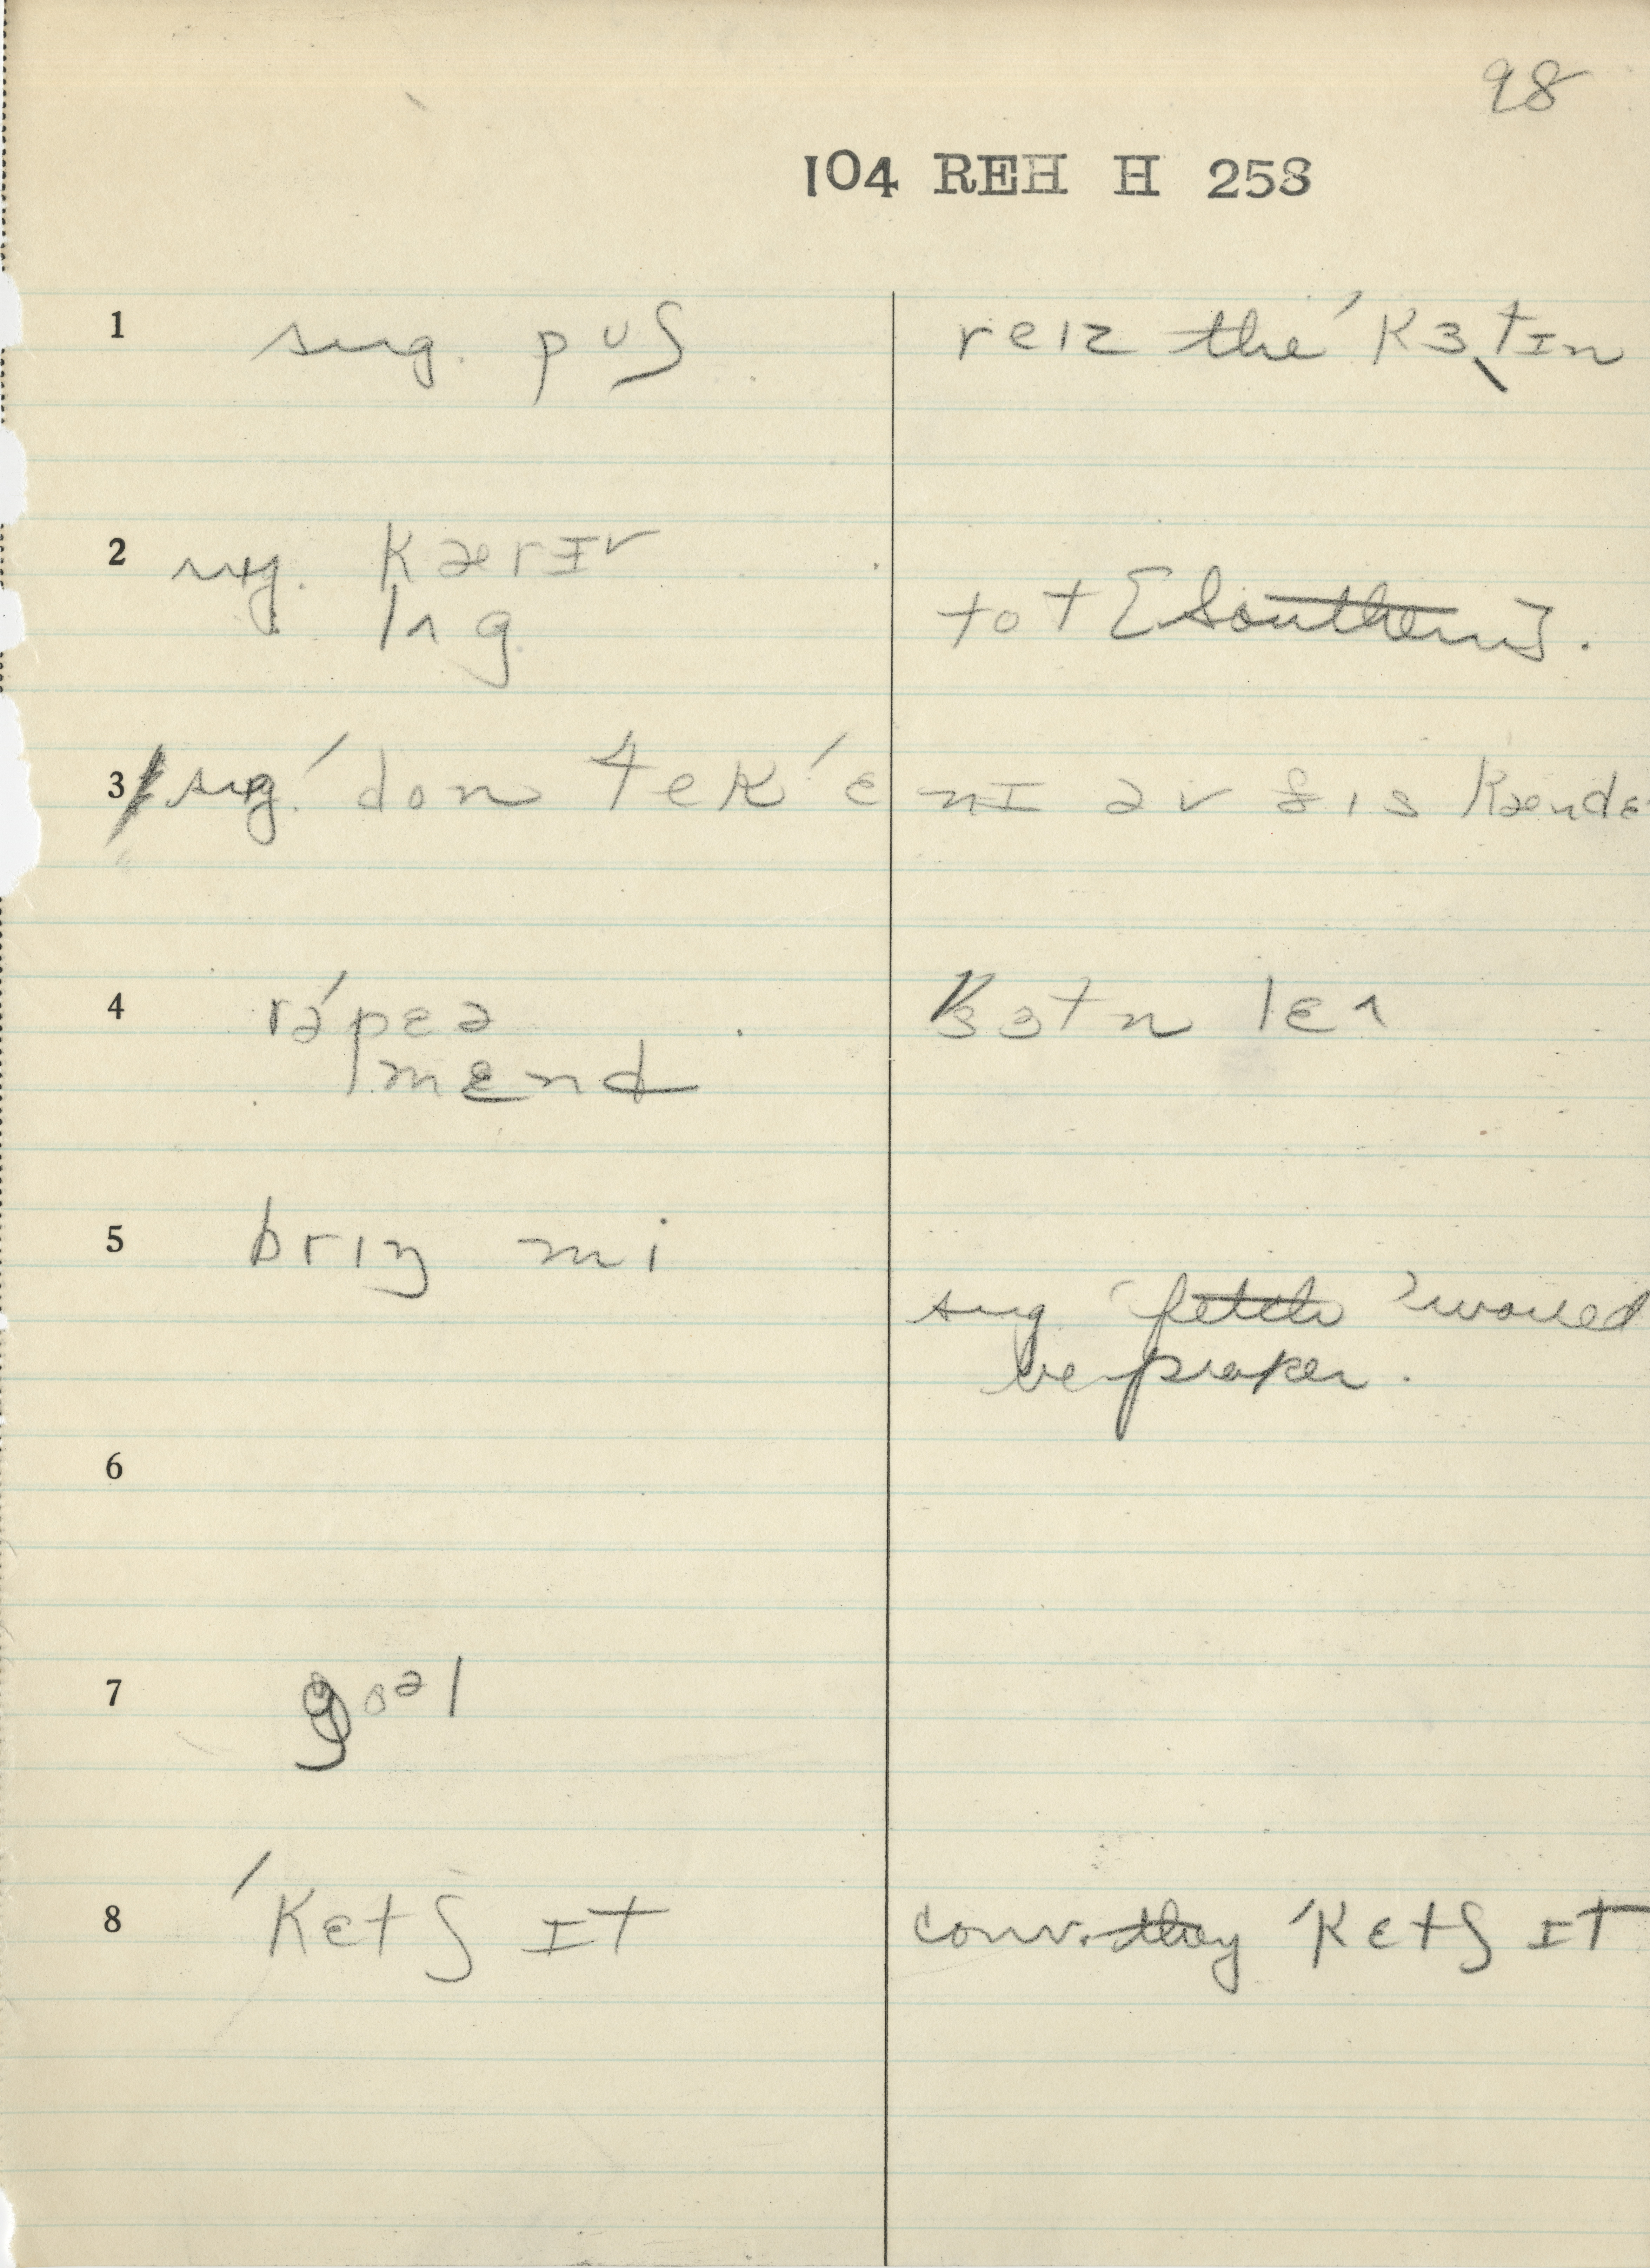 98
104 REH H 258
1 sug. pʊʃ reɪz the ˈkɜtɪn
2 sug. kærɪv tot [Southern].
lʌg
3 sug. ˈdon tek ˈɛnɪ əv ðɪs kændɛ
4 rəˈpɛə kɜtn lɛʌ
mɛnd
5 brɪŋ mi
sug 'fetch' would
be proper.
6
7 goəl
8 ˈkɛtʃ ɪt conv. they ˈkɛtʃ ɪt